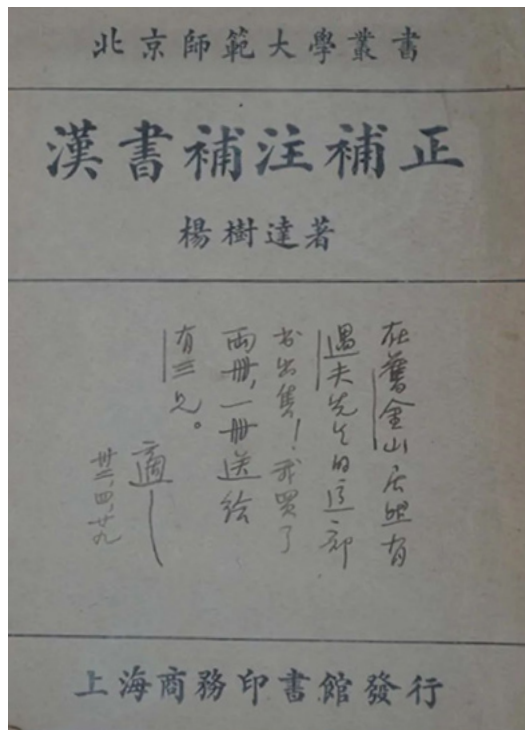 北京師範大學叢書
漢書補注補正
楊樹達著
在舊金山居然有
遇夫先生的這部
书出售！我買了
兩册，一册送给
有三兄。
適
卅二，四，廿九
上海商務印書館發行